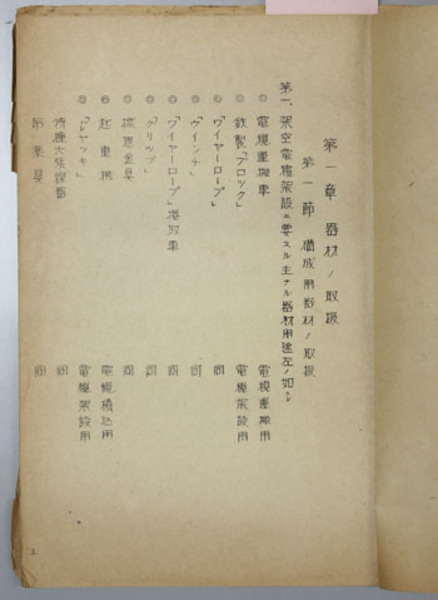 第一章 器材ノ取扱
第一節 構成用器材ノ取扱
第一、架空電纜架設ニ要スル主ナル器材用途左ノ如シ
◎ 電纜運搬車 電纜運搬用
◎ 鉄製「ブロック」 電纜架設用
◎ 「ワイヤーロープ」 同
◎ 「ウインチ」 同
◎ 「ワイヤーロープ」捲取車 同
◎ 「グリップ」 同
◎ 金具 同
◎ 起重機 電纜積込用
◎ 「ジャッキ」 電纜架設用
特種大張線器 同
吊業具 同